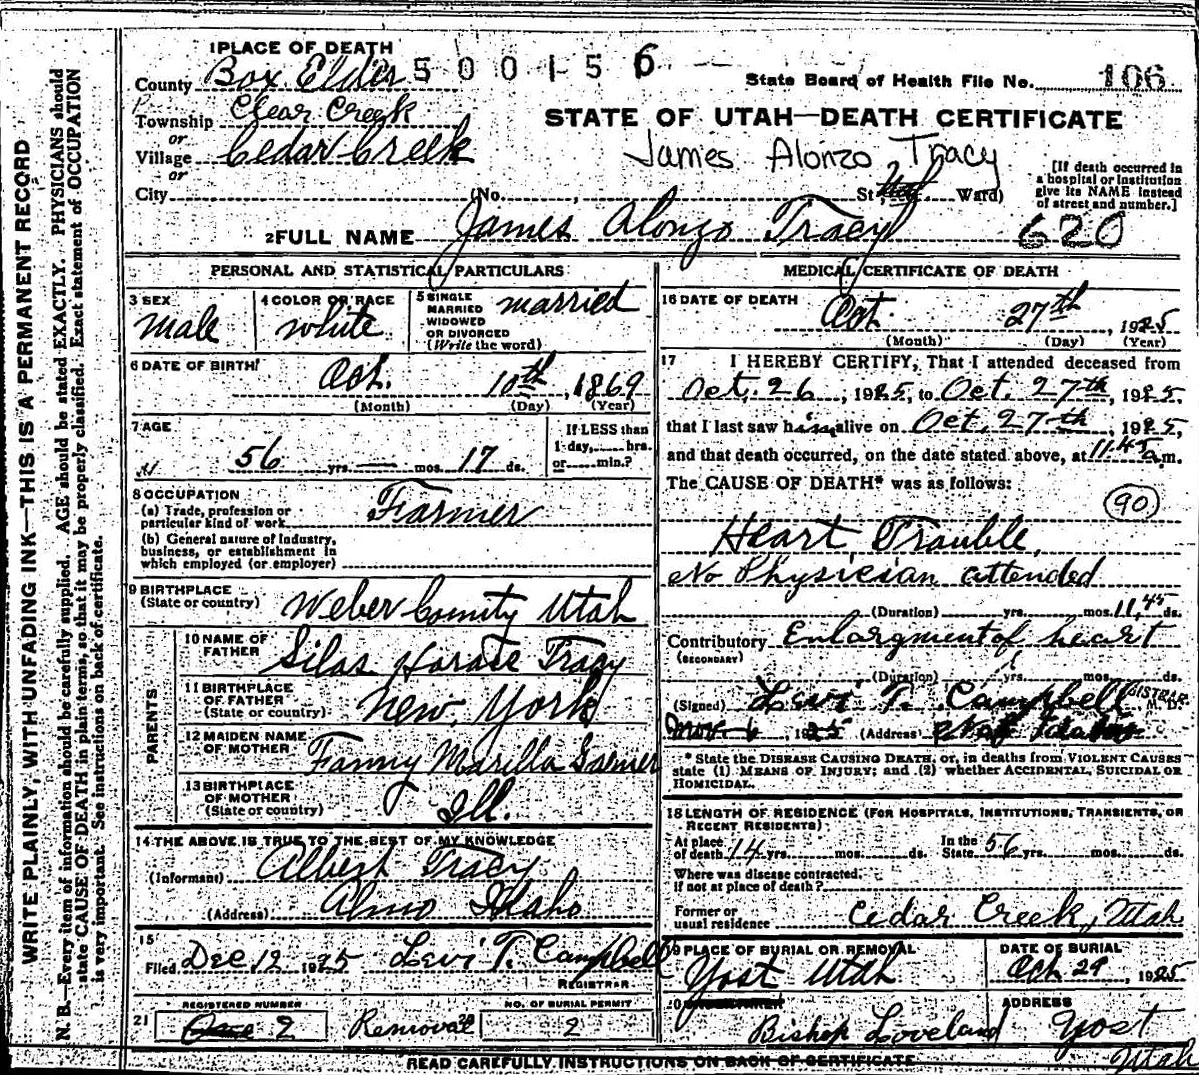 WRITE PLAINLY, WITH UNFADING INK—THIS IS A PERMANENT RECORD
N. B.—Every item of information should be carefully supplied. AGE should be stated EXACTLY. PHYSICIANS should
state CAUSE OF DEATH in plain terms, so that it may be properly classified. Exact statement of OCCUPATION
is very important. See instructions on back of certificate.
1 PLACE OF DEATH
County Box Elder 500156
State Board of Health File No. 106
Township Clear Creek
or
Village Cedar Creek
or
STATE OF UTAH—DEATH CERTIFICATE
James Alonzo Tracy
City (No. St. Ward)
[If death occurred in
a hospital or institution
give its NAME instead
of street and number.]
2 FULL NAME James Alonzo Tracy 620
PERSONAL AND STATISTICAL PARTICULARS
3 SEX
male
4 COLOR OR RACE
white
5 SINGLE
MARRIED
WIDOWED
OR DIVORCED
(Write the word)
married
6 DATE OF BIRTH
Oct. 10th, 1869
(Month) (Day) (Year)
7 AGE
56 yrs. — mos. 17 ds.
If LESS than
1 day, hrs.
or min.?
8 OCCUPATION
(a) Trade, profession or
particular kind of work Farmer
(b) General nature of Industry,
business, or establishment in
which employed (or employer)
9 BIRTHPLACE
(State or country) Weber County Utah
PARENTS
10 NAME OF
FATHER Silas Horace Tracy
11 BIRTHPLACE
OF FATHER
(State or country) New York
12 MAIDEN NAME
OF MOTHER Fanny Marilla
13 BIRTHPLACE
OF MOTHER
(State or country) Ill.
14 THE ABOVE IS TRUE TO THE BEST OF MY KNOWLEDGE
(Informant) Albert Tracy
(Address) Almo Idaho
15
Filed Dec 12 1925 Levi T. Campbell
REGISTRAR
21 REGISTERED NUMBER
2
Removal
NO. OF BURIAL PERMIT
2
MEDICAL CERTIFICATE OF DEATH
16 DATE OF DEATH
Oct. 27th, 1925
(Month) (Day) (Year)
17 I HEREBY CERTIFY, That I attended deceased from
Oct. 26, 1925, to Oct. 27th, 1925,
that I last saw him alive on Oct. 27th, 1925,
and that death occurred, on the date stated above, at 11.45 a.m.
The CAUSE OF DEATH* was as follows:
90
Heart Trouble,
No Physician attended
(Duration) yrs. mos. 11,45 ds.
Contributory Enlargment of heart
(SECONDARY)
(Duration) yrs. mos. ds.
(Signed) Levi T. Campbell M. D.
Nov. 6, 1925 (Address)
* State the DISEASE CAUSING DEATH, or, in deaths from VIOLENT CAUSES
state (1) MEANS OF INJURY; and (2) whether ACCIDENTAL, SUICIDAL OR
HOMICIDAL.
18 LENGTH OF RESIDENCE (FOR HOSPITALS, INSTITUTIONS, TRANSIENTS, OR
RECENT RESIDENTS)
At place
of death 14 yrs. mos. ds. In the
State 56 yrs. mos. ds.
Where was disease contracted,
if not at place of death?
Former or
usual residence Cedar Creek, Utah
19 PLACE OF BURIAL OR REMOVAL
Yost Utah
DATE OF BURIAL
Oct. 29, 1925
Bishop Loveland
ADDRESS
Yost
Utah
READ CAREFULLY INSTRUCTIONS ON BACK OF CERTIFICATE